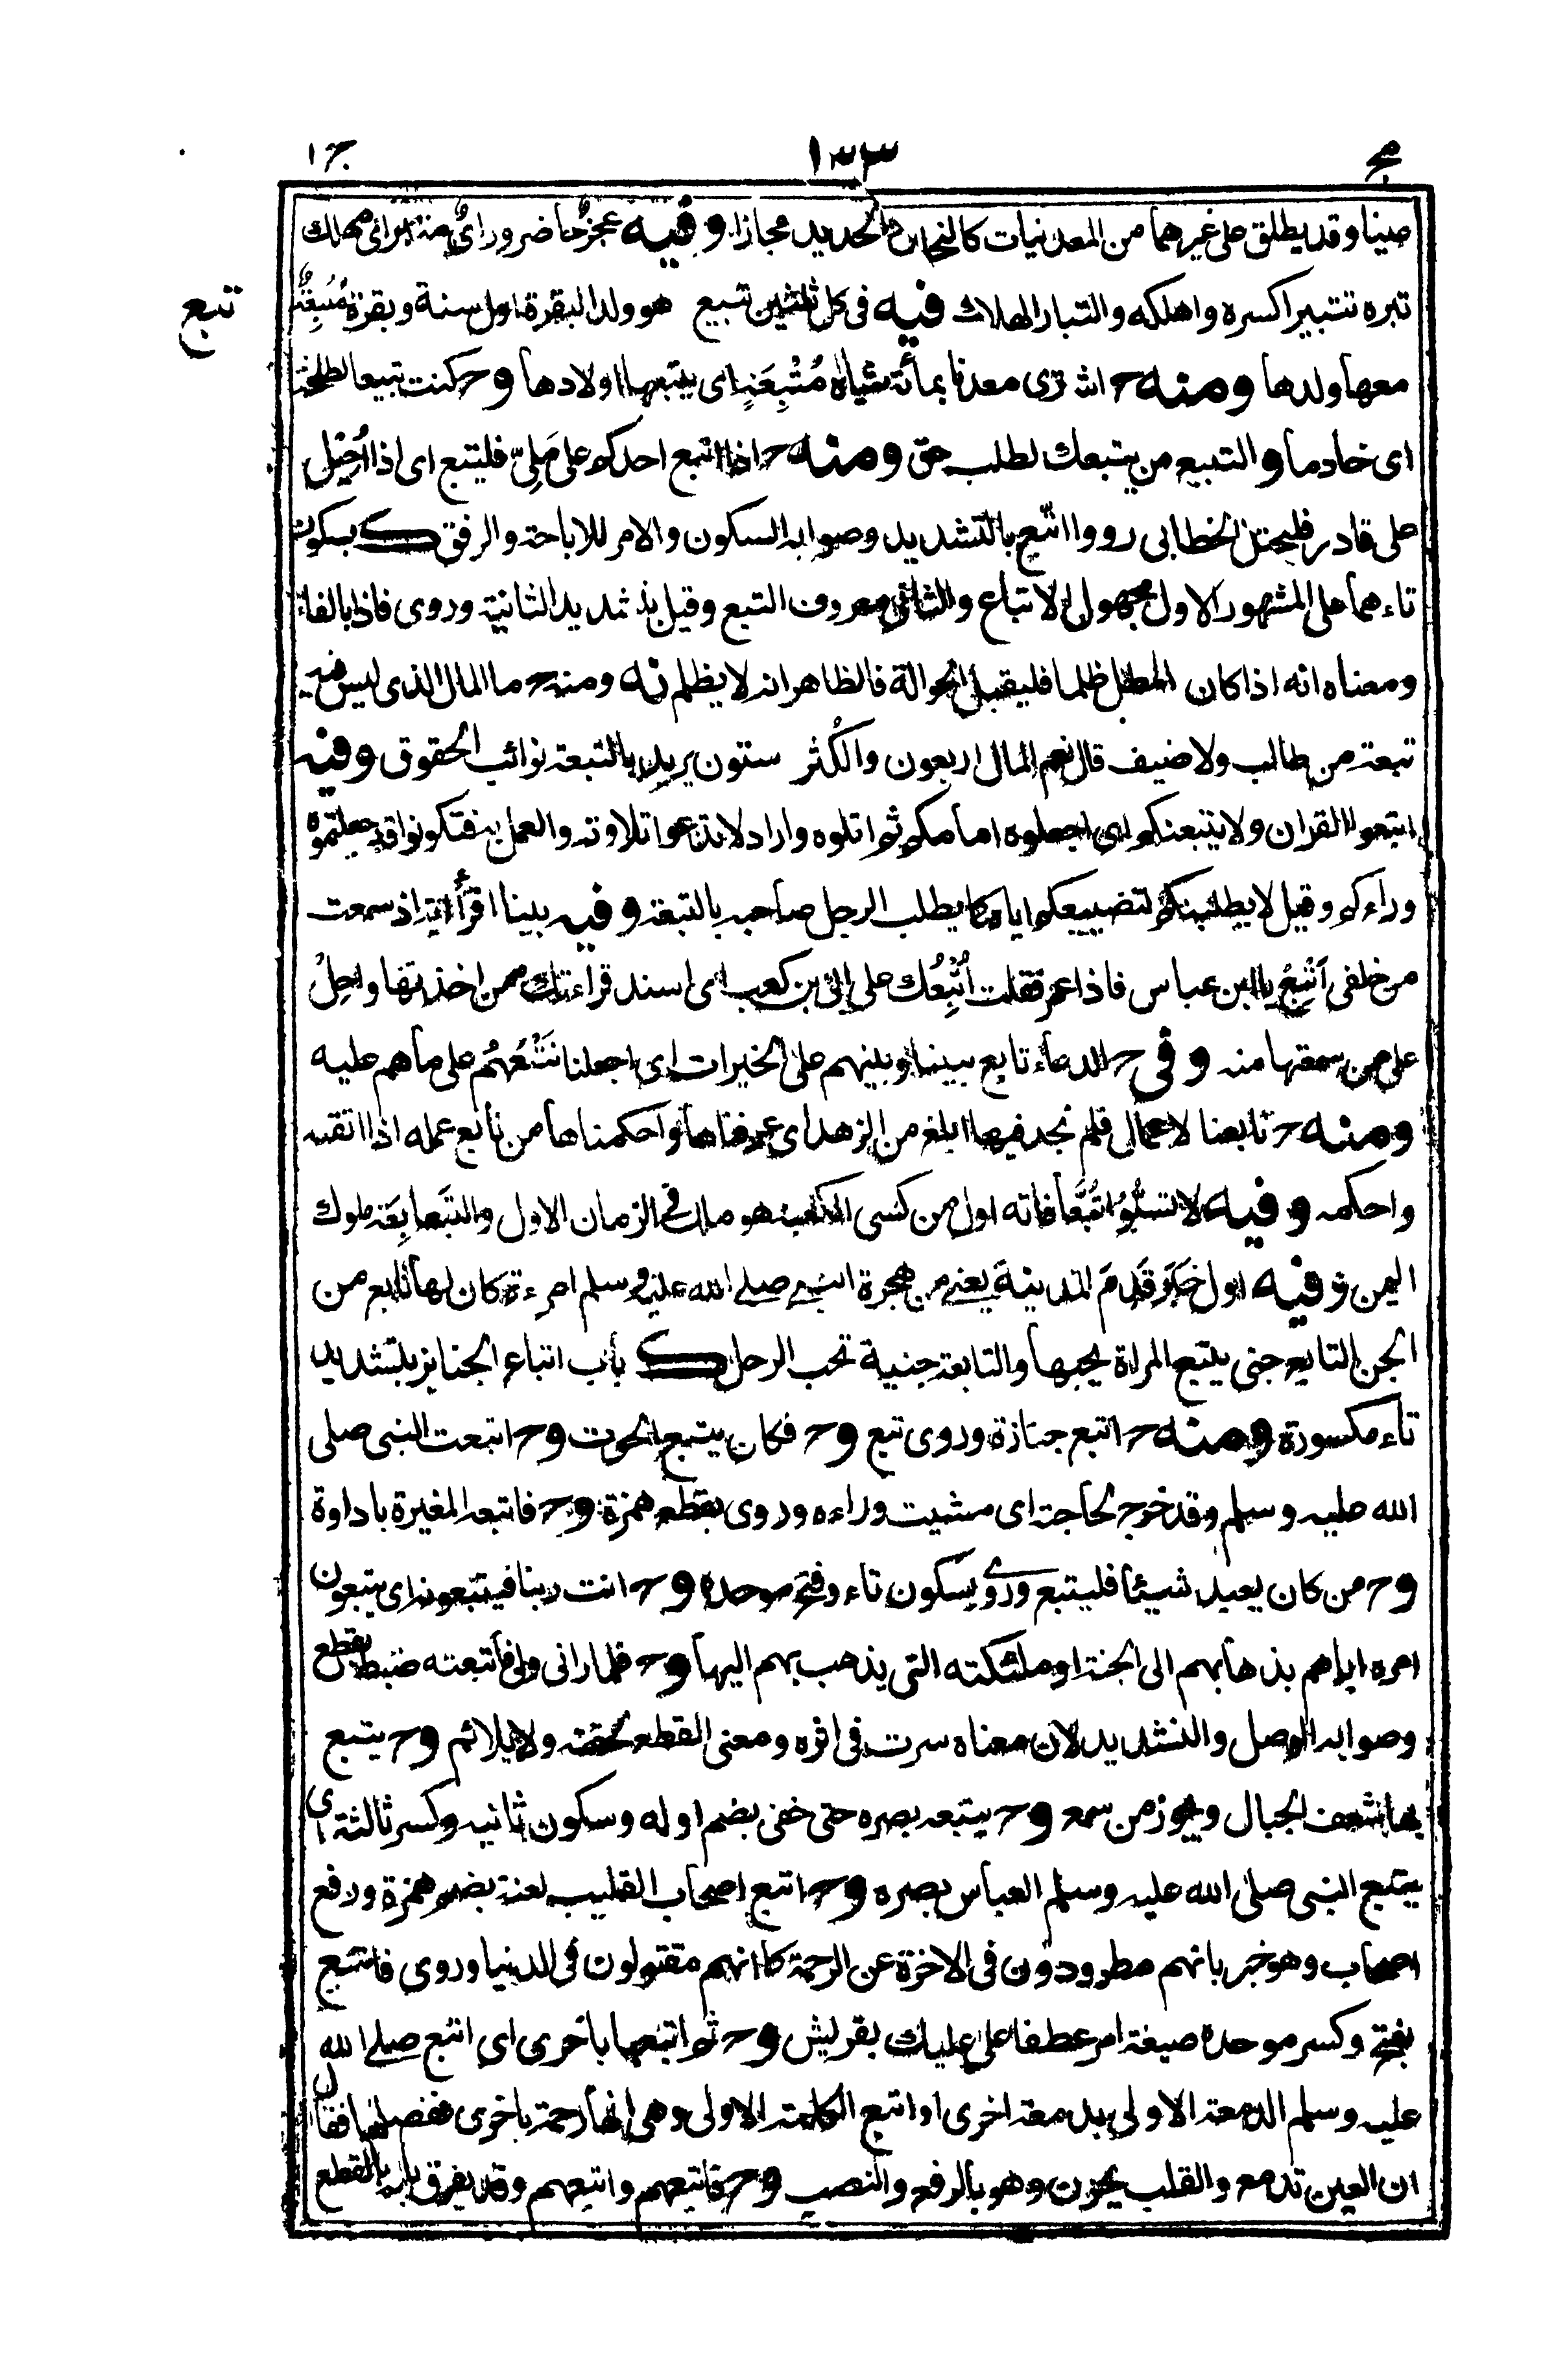 مج ١٣٣ ج١
عينا وقد يطلق على غيرهما من المعدنيات كالنحاس والحديد مجازا وفيه عجز حاضر وراى متبر اى مهلك
تبره تتبيرا كسره واهلكه والتبار الهلاك فيه فى كل ثلثين تبيع هو ولد البقرة اول سنة وبقرة مُتبِعٌ
تبع
معها ولدها ومنه ح اشترى معدنا بمأة شياة مُتْبِعَة اى يتبعها اولادها وح كنت تبيعا لطلحة
اى خادما والتبيع من يتبعك لطلب حق ومنه ح اذا اتبع احدكم على مَلِىّ فليتبع اى اذا اُحِيْل
على قادر فليحتل الخطابى رووا اتّبع بالتشديد وصوابه السكون والامر للاباحة والرفق ك بسكون
تاءهما على المشهور الاول مجهول الاتباع والثانى معروف التبع وقيل بتشديد الثانية وروى فاذا بالفاء
ومعناه انه اذا كان المطل ظلما فليقبل الحوالة فالظاهر انه لا يظلم نه ومنه ح ما المال الذى ليس فيه
تبعة من طالب ولا ضيف قال نعم المال اربعون والكُثر ستون يريد بالتبعة نوائب الحقوق وفيه
اتبعوا القران ولا يتبعنكم اى اجعلوه امامكم ثم اتلوه واراد لا تدعوا تلاوته والعمل به فتكونوا قد جعلتموه
وراءكم وقيل لا يطلبنكم لتضييعكم اياه كما يطلب الرجل صاحبه بالتبعة وفيه بينا اقرأ اية اذ سمعت
من خلفى اَتْبِعْ يا ابن عباس فاذا عمر فقلت اُتْبِعُك على ابى بن كعب اى اسند قراءتك ممن اخذتها واحِلْ
على من سمعتها منه وفى ح الدعاء تابع بيننا وبينهم على الخيرات اى اجعلنا نَتْبَعُهُم على ما هم عليه
ومنه ح تابعنا الاعمال فلم نجد فيها ابلغ من الزهد اى عرفناها واحكمناها من تابع عمله اذا اتقنه
واحكمه وفيه لا تسبُّوْا تُبَّعا فانه اول من كسى الكعبة هو ملك فى الزمان الاول والتَبَابِعَة ملوك
اليمن وفيه اول خبر قَدِمَ المدينةَ يعنى من هجرة النبى صلى الله عليه وسلم امرءة كان لها تابع من
الجن التابع جنى يتبع المراة يحبها والتابعة جنية تحب الرجل ك باب اتباع الجنايز بتشديد
تاء مكسورة ومنه ح اتبع جنازة وروى تبع وح فكان يتبع الحوت وح اتبعت النبى صلى
الله عليه وسلم وقد خرج لحاجته اى مشيت وراءه وروى بقطع همزة وح فاتبعه المغيرة باداوة
وح من كان يعبد شيئا فليتبع وروى بسكون تاء وفتح موحدة وح انت ربنا فيتبعونه اى يتبعون
امره اياهم بذهابهم الى الجنة او ملئكته التى يذهب بهم اليها وح فلما رانى ولى فأتبعته ضبط بقطع
وصوابه الوصل والتشديد لان معناه سرت فى اثره ومعنى القطع لحقته ولا يلائم وح يتبع
بها شعف الجبال ويجوز من سمع وح يتبعه بصره حتى خفى بضم اوله وسكون ثانيه وكسر ثالثة اى
يتبع النبى صلى الله عليه وسلم العباس بصره وح اتبع اصحاب القليب لعنة بضم همزة ورفع
اصحاب وهو خبر بانهم مطرودون فى الاخرة عن الرحمة كما انهم مقتولون فى الدنيا وروى فاتبع
بفتح وكسر موحدة صيغة امر عطفا على عليك بقريش وح ثم اتبعها باخرى اى اتبع صلى الله
عليه وسلم الدمعة الاولى بدمعة اخرى او اتبع الكلمة الاولى وهى انها رحمة باخرى ففصلها فقال
ان العين تدمع والقلب يحزن وهو بالرفع والنصب وح فاتبعهم واتبعهم وقد يفرق بان بالقطع